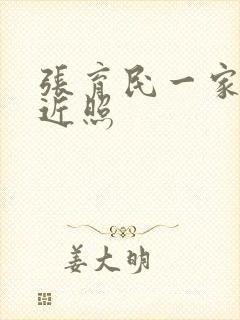 張育民一家
近照
姜大明